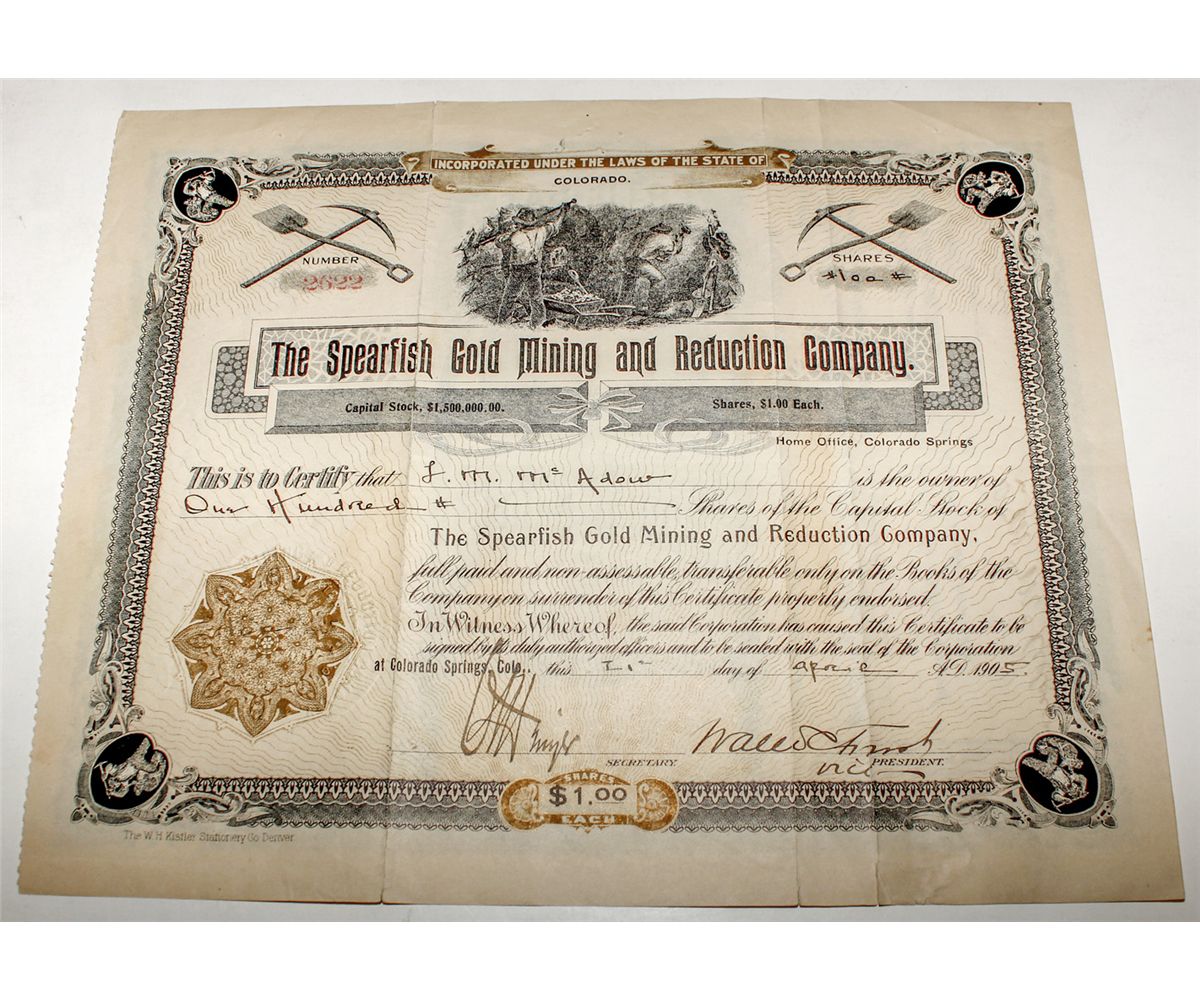 INCORPORATED UNDER THE LAWS OF THE STATE OF
COLORADO.
NUMBER
2622
SHARES
#100#
The Spearfish Gold Mining and Reduction Company.
Capital Stock, $1,500,000.00.
Shares, $1.00 Each.
Home Office, Colorado Springs
This is to Certify that L. M. Mc Adow is the owner of
One Hundred # Shares of the Capital Stock of
The Spearfish Gold Mining and Reduction Company,
full paid and non-assessable, transferable only on the Books of the
Company on surrender of this Certificate properly endorsed.
In Witness Whereof, the said Corporation has caused this Certificate to be
signed by its duly authorized officers and to be sealed with the seal of the Corporation
at Colorado Springs, Colo., this day of A.D. 1905.
SECRETARY.
Vice PRESIDENT.
SHARES
$1.00
EACH
The W. H. Kistler Stationery Co Denver